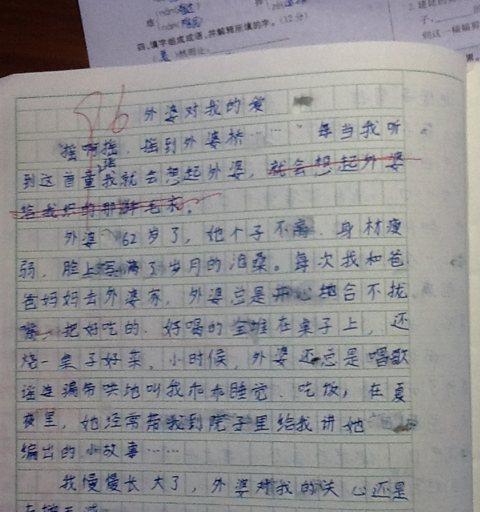 四、填字组成成语，并解释所填的字。(12分)
86
外婆对我的爱
"摇啊摇，摇到外婆桥……"每当我听
到这首童谣我就会想起外婆，就会想起外婆
给我织的那件毛衣。
外婆62岁了，她个子不高，身材瘦
弱，脸上写满了岁月的沧桑。每次我和爸
爸妈妈去外婆家，外婆总是开心地合不拢
嘴，把好吃的、好喝的全堆在桌子上，还
烧一桌子好菜，小时候，外婆还总是唱歌
谣连骗带哄地叫我乖乖睡觉、吃饭，在夏
夜里，她经常带我到院子里给我讲她
编出的小故事……
我慢慢长大了，外婆对我的关心还是